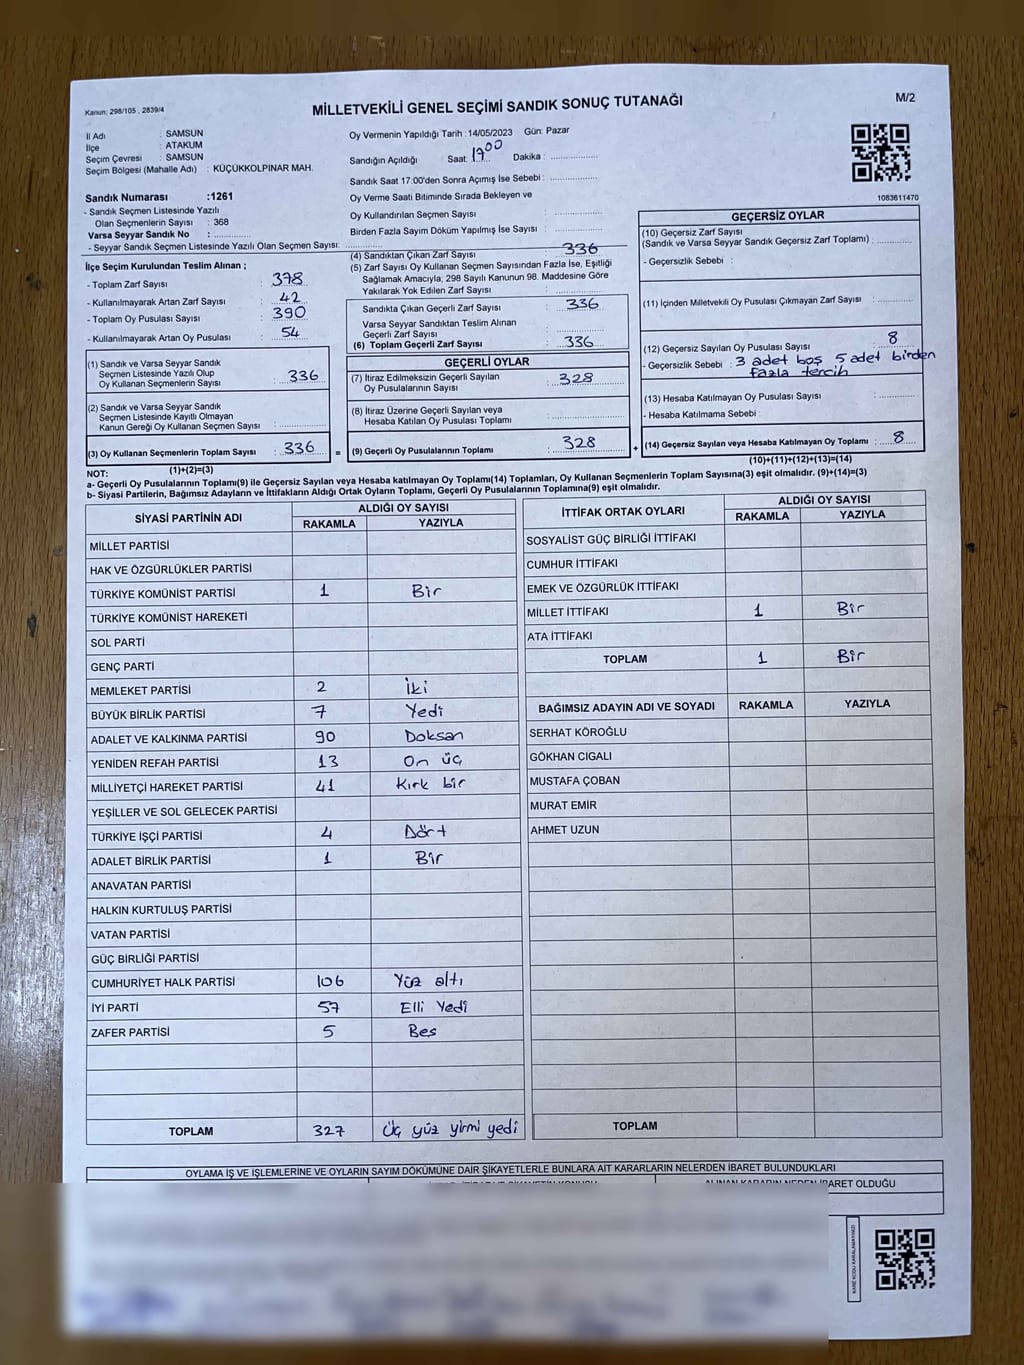 Kanun: 298/105 , 2839/4
MİLLETVEKİLİ GENEL SEÇİMİ SANDIK SONUÇ TUTANAĞI
M/2
İl Adı : SAMSUN
İlçe : ATAKUM
Seçim Çevresi : SAMSUN
Seçim Bölgesi (Mahalle Adı) : KÜÇÜKKOLPINAR MAH.
Sandık Numarası :1261
- Sandık Seçmen Listesinde Yazılı
Olan Seçmenlerin Sayısı : 368
Varsa Seyyar Sandık No :
- Seyyar Sandık Seçmen Listesinde Yazılı Olan Seçmen Sayısı:
Oy Vermenin Yapıldığı Tarih : 14/05/2023 Gün: Pazar
Sandığın Açıldığı Saat: 17 00 Dakika :
Sandık Saat 17:00'den Sonra Açılmış İse Sebebi :
Oy Verme Saati Bitiminde Sırada Bekleyen ve
Oy Kullandırılan Seçmen Sayısı :
Birden Fazla Sayım Döküm Yapılmış İse Sayısı :
1083611470
İlçe Seçim Kurulundan Teslim Alınan ;
- Toplam Zarf Sayısı : 378
- Kullanılmayarak Artan Zarf Sayısı : 42
- Toplam Oy Pusulası Sayısı : 390
- Kullanılmayarak Artan Oy Pusulası : 54
(1) Sandık ve Varsa Seyyar Sandık
Seçmen Listesinde Yazılı Olup
Oy Kullanan Seçmenlerin Sayısı : 336
(2) Sandık ve Varsa Seyyar Sandık
Seçmen Listesinde Kayıtlı Olmayan
Kanun Gereği Oy Kullanan Seçmen Sayısı :
(3) Oy Kullanan Seçmenlerin Toplam Sayısı : 336
(1)+(2)=(3)
(4) Sandıktan Çıkan Zarf Sayısı : 336
(5) Zarf Sayısı Oy Kullanan Seçmen Sayısından Fazla İse, Eşitliği
Sağlamak Amacıyla; 298 Sayılı Kanunun 98. Maddesine Göre
Yakılarak Yok Edilen Zarf Sayısı :
Sandıkta Çıkan Geçerli Zarf Sayısı : 336
Varsa Seyyar Sandıktan Teslim Alınan
Geçerli Zarf Sayısı :
(6) Toplam Geçerli Zarf Sayısı : 336
GEÇERLİ OYLAR
(7) İtiraz Edilmeksizin Geçerli Sayılan
Oy Pusulalarının Sayısı : 328
(8) İtiraz Üzerine Geçerli Sayılan veya
Hesaba Katılan Oy Pusulası Toplamı :
= (9) Geçerli Oy Pusulalarının Toplamı : 328 +
GEÇERSİZ OYLAR
(10) Geçersiz Zarf Sayısı
(Sandık ve Varsa Seyyar Sandık Geçersiz Zarf Toplamı) :
- Geçersizlik Sebebi :
(11) İçinden Milletvekili Oy Pusulası Çıkmayan Zarf Sayısı :
(12) Geçersiz Sayılan Oy Pusulası Sayısı : 8
- Geçersizlik Sebebi : 3 adet boş 5 adet birden
fazla tercih
(13) Hesaba Katılmayan Oy Pusulası Sayısı :
- Hesaba Katılmama Sebebi :
(14) Geçersiz Sayılan veya Hesaba Katılmayan Oy Toplamı : 8
(10)+(11)+(12)+(13)=(14)
NOT:
a- Geçerli Oy Pusulalarının Toplamı(9) ile Geçersiz Sayılan veya Hesaba katılmayan Oy Toplamı(14) Toplamları, Oy Kullanan Seçmenlerin Toplam Sayısına(3) eşit olmalıdır. (9)+(14)=(3)
b- Siyasi Partilerin, Bağımsız Adayların ve İttifakların Aldığı Ortak Oyların Toplamı, Geçerli Oy Pusulalarının Toplamına(9) eşit olmalıdır.
SİYASİ PARTİNİN ADI ALDIĞI OY SAYISI
RAKAMLA YAZIYLA
MİLLET PARTİSİ
HAK VE ÖZGÜRLÜKLER PARTİSİ
TÜRKİYE KOMÜNİST PARTİSİ 1 Bir
TÜRKİYE KOMÜNİST HAREKETİ
SOL PARTİ
GENÇ PARTİ
MEMLEKET PARTİSİ 2 İki
BÜYÜK BİRLİK PARTİSİ 7 Yedi
ADALET VE KALKINMA PARTİSİ 90 Doksan
YENİDEN REFAH PARTİSİ 13 On üç
MİLLİYETÇİ HAREKET PARTİSİ 41 Kırk bir
YEŞİLLER VE SOL GELECEK PARTİSİ
TÜRKİYE İŞÇİ PARTİSİ 4 Dört
ADALET BİRLİK PARTİSİ 1 Bir
ANAVATAN PARTİSİ
HALKIN KURTULUŞ PARTİSİ
VATAN PARTİSİ
GÜÇ BİRLİĞİ PARTİSİ
CUMHURİYET HALK PARTİSİ 106 Yüz altı
İYİ PARTİ 57 Elli Yedi
ZAFER PARTİSİ 5 Beş
TOPLAM 327 Üç yüz yirmi yedi
İTTİFAK ORTAK OYLARI ALDIĞI OY SAYISI
RAKAMLA YAZIYLA
SOSYALİST GÜÇ BİRLİĞİ İTTİFAKI
CUMHUR İTTİFAKI
EMEK VE ÖZGÜRLÜK İTTİFAKI
MİLLET İTTİFAKI 1 Bir
ATA İTTİFAKI
TOPLAM 1 Bir
BAĞIMSIZ ADAYIN ADI VE SOYADI RAKAMLA YAZIYLA
SERHAT KÖROĞLU
GÖKHAN CIGALI
MUSTAFA ÇOBAN
MURAT EMİR
AHMET UZUN
TOPLAM
OYLAMA İŞ VE İŞLEMLERİNE VE OYLARIN SAYIM DÖKÜMÜNE DAİR ŞİKAYETLERLE BUNLARA AİT KARARLARIN NELERDEN İBARET BULUNDUKLARI
ALINAN KARARIN NEDEN İBARET OLDUĞU